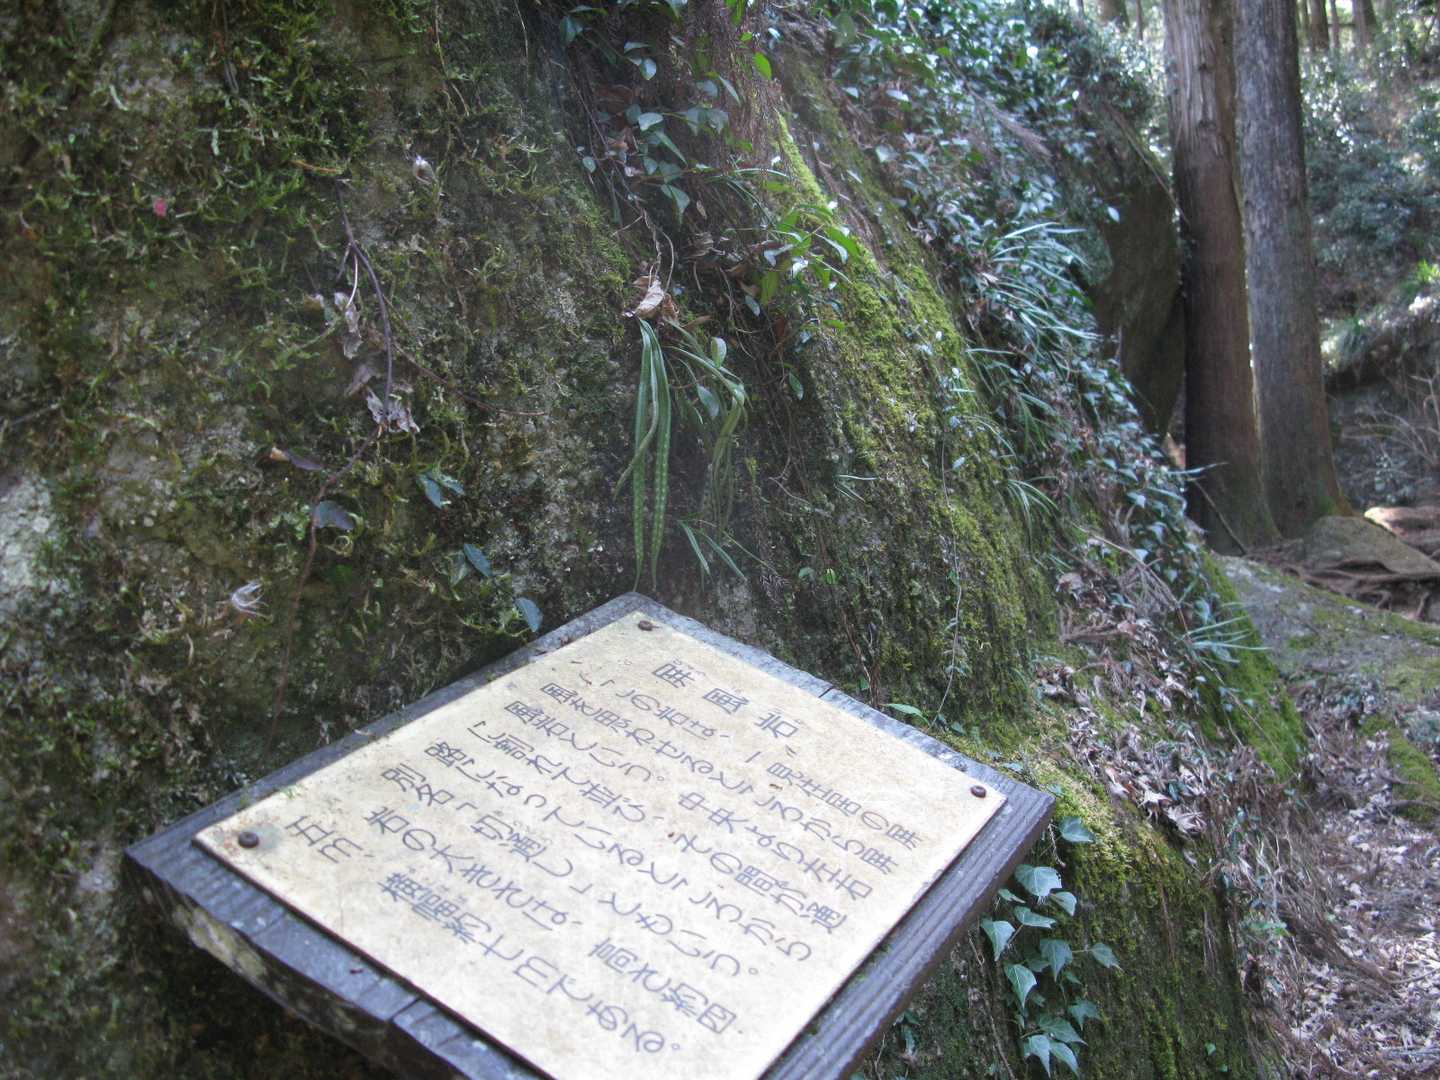 屏風岩
この岩は、一見生居の屏
風を思わせるところから屏
風岩という。中央より左右
に割れて並び、その間が通
路になっているところから
別名「切通し」ともいう。
岩の大きさは、高さ約四・
五m、横幅約十mである。